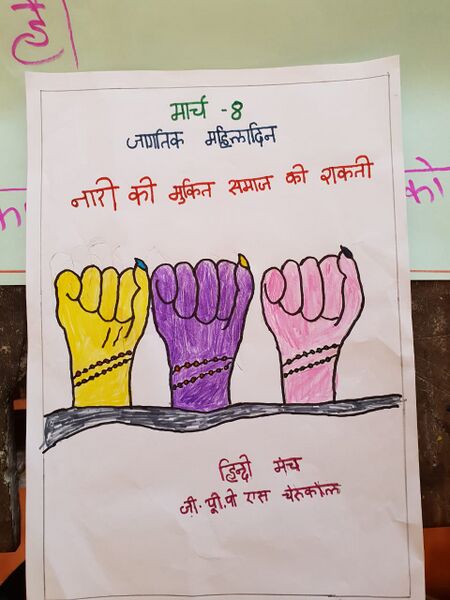 है
मार्च - 8
जणतिक महिलादिन
नारी की मुक्ति समाज को शकती
को
हिन्दी मंच
जी. यू. पी एस चेरुकोल